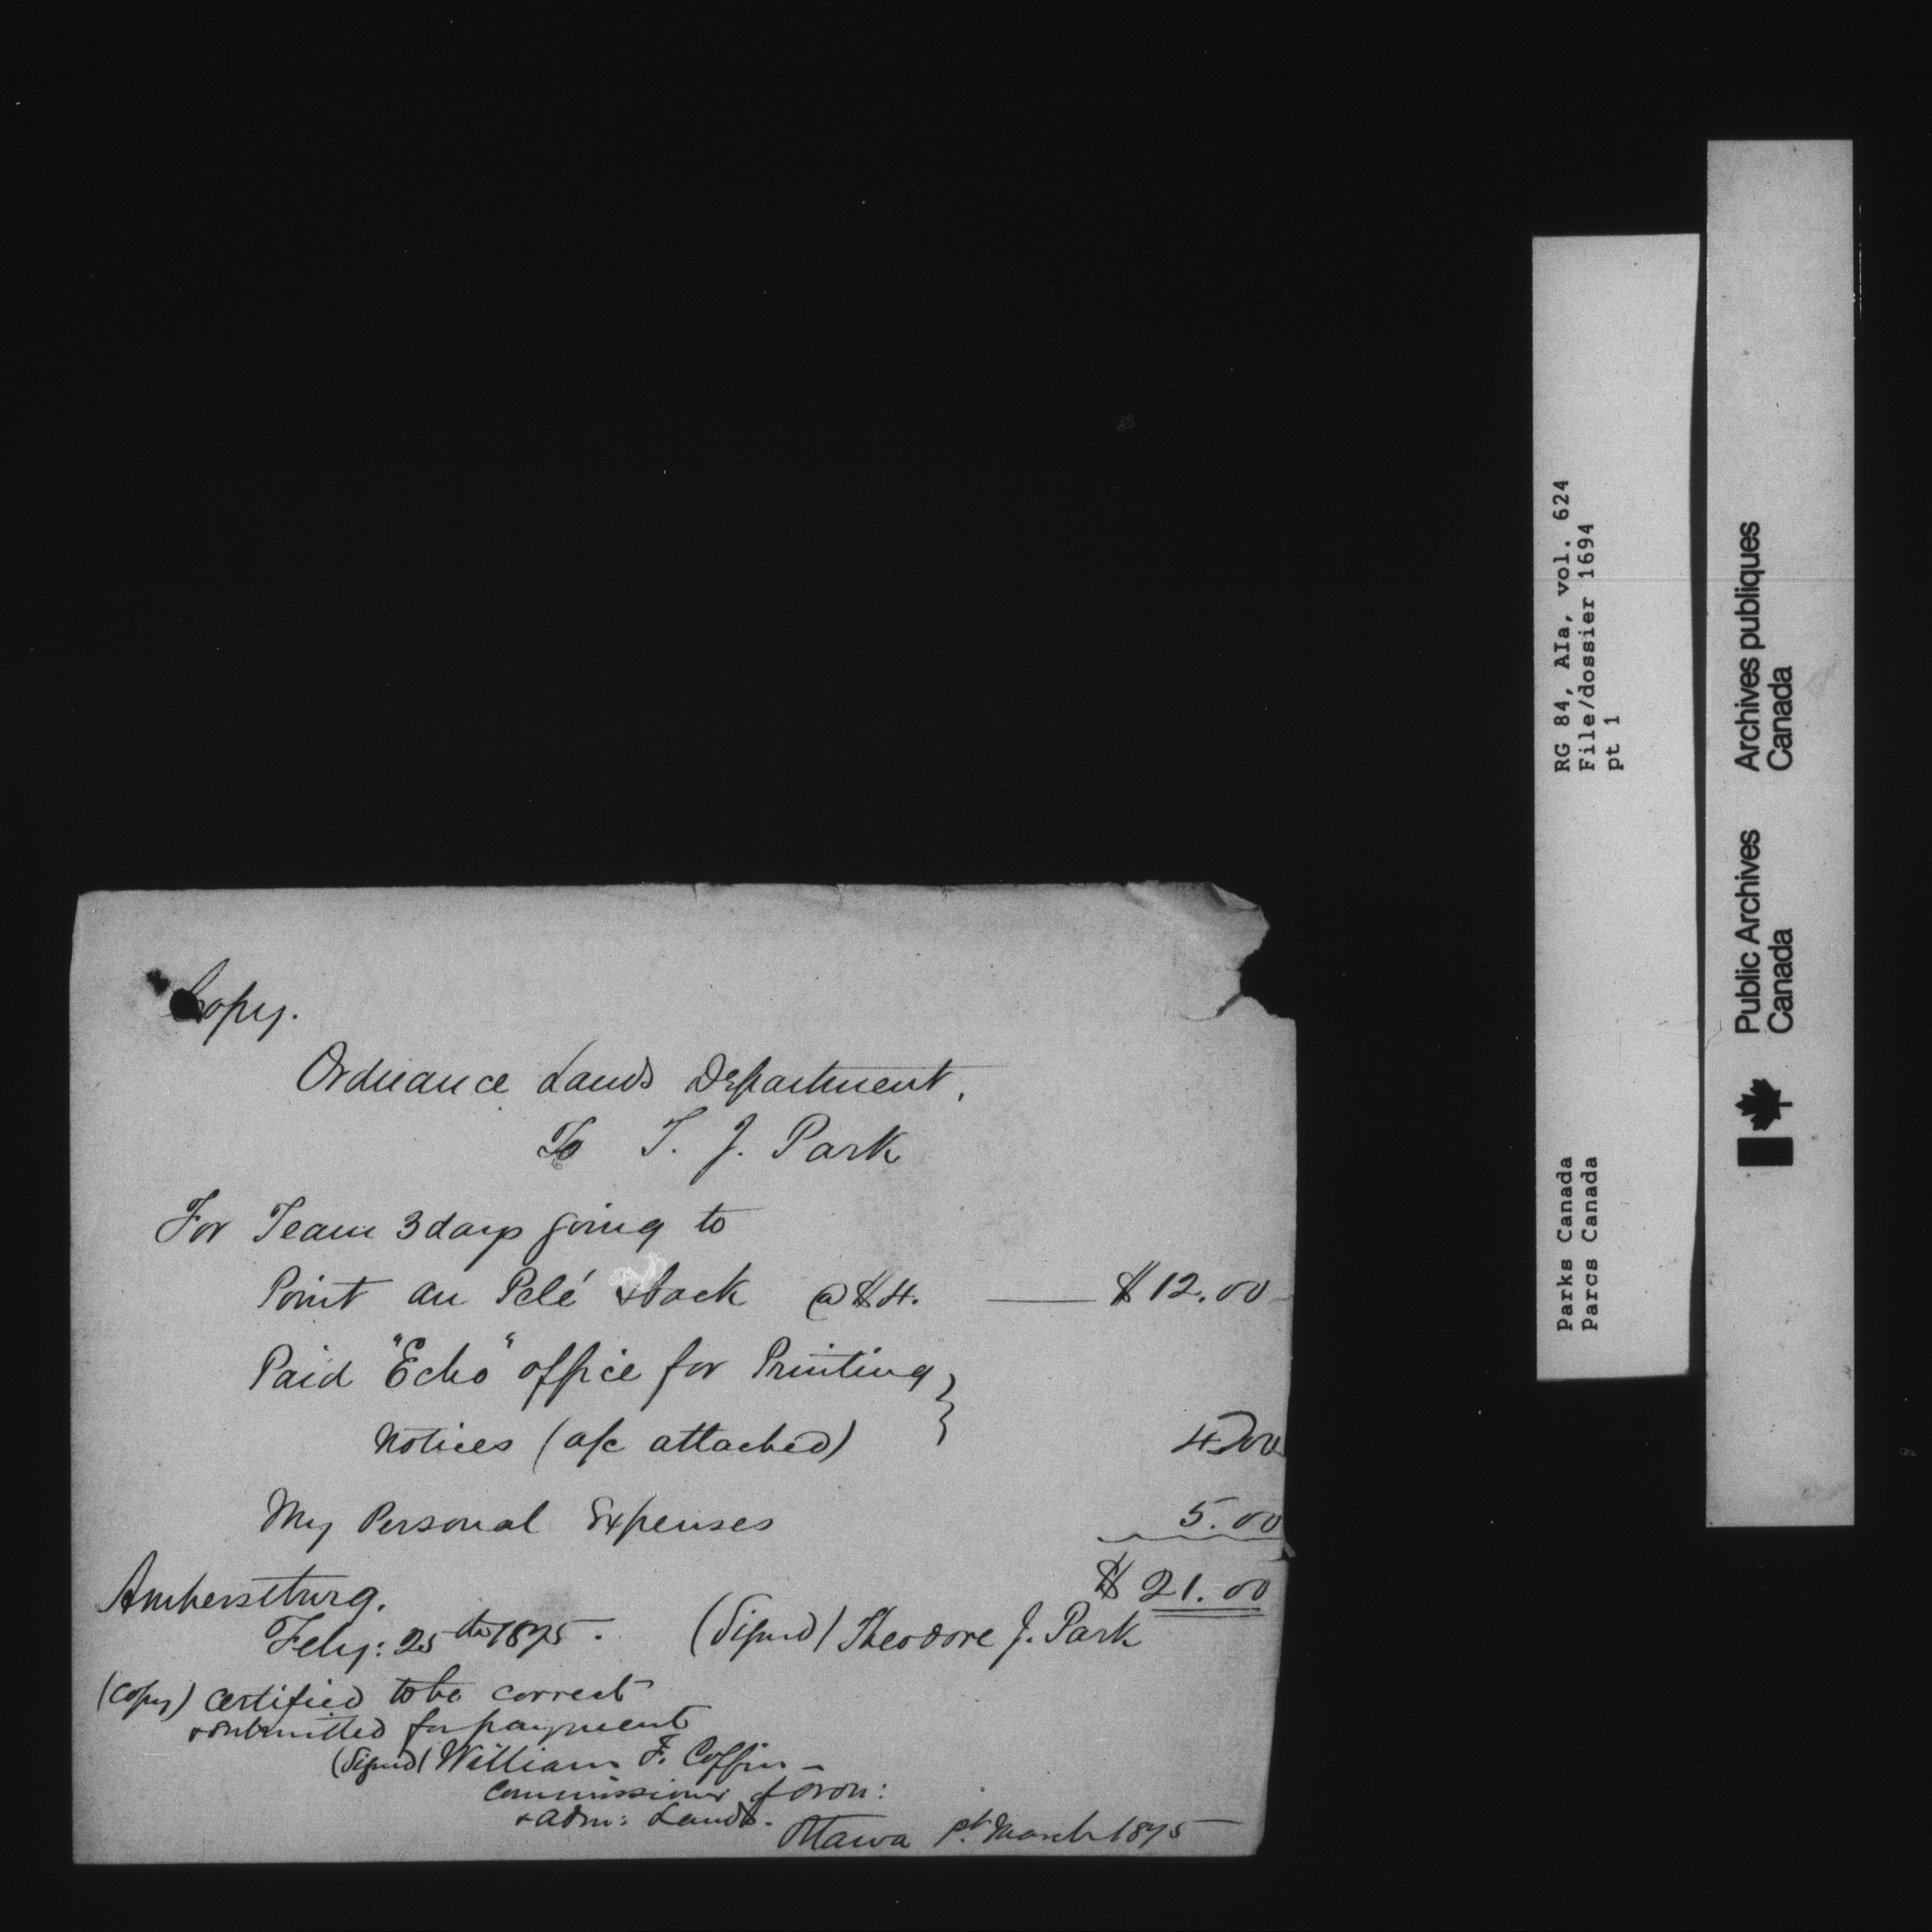 Copy.
Ordnance Lands Department,
To T. J. Park
For Team 3 days going to
Point au Pelé & back @ $4. — $12.00
Paid "Echo" office for Printing
Notices (a/c attached) } 4.00
My Personal Expenses 5.00
$21.00
Amherstburg.
Feby: 25th 1875. (Signed) Theodore J. Park
(Copy) Certified to be correct
& submitted for payment
(Signed) William F. Coffin -
Commissioner of Ordn:
& Adm: Lands.
Ottawa 1st March 1875
RG 84, AIa, vol. 624
File/dossier 1694
pt 1
Parks Canada
Parcs Canada
Public Archives
Canada
Archives publiques
Canada